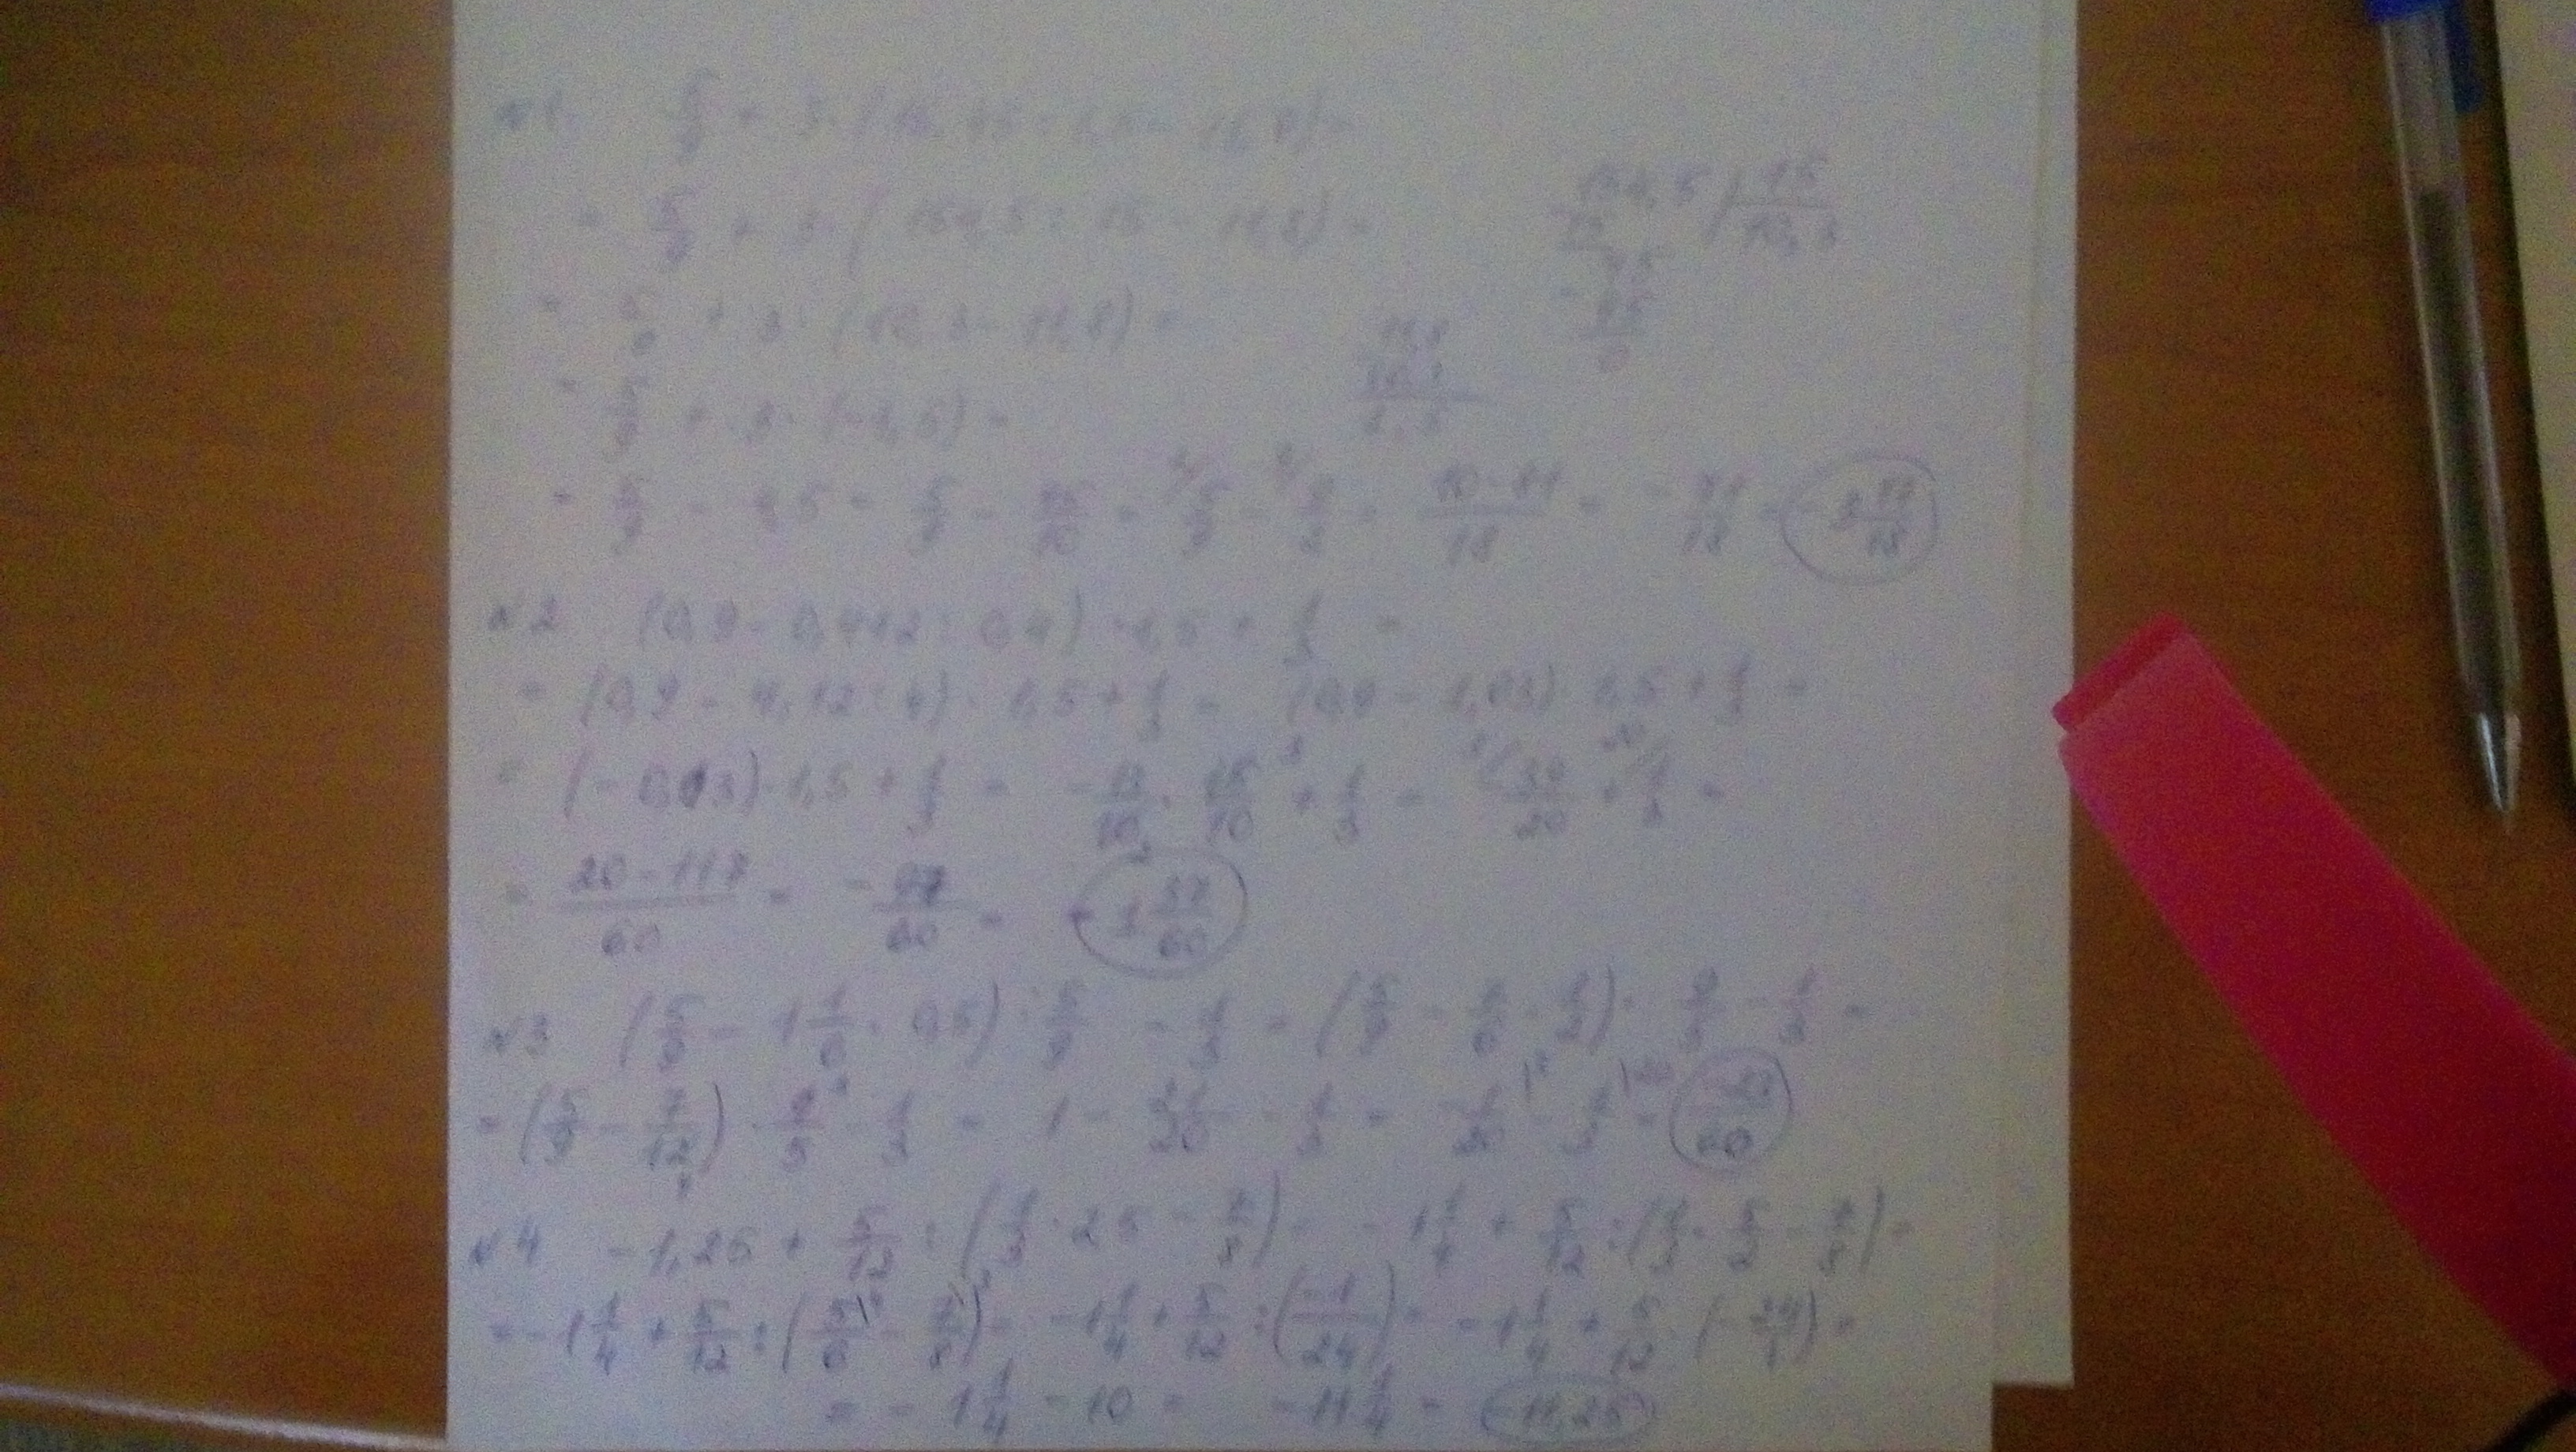 №1 5/9 + 3 · (15,45 : 1,5 - 11,8) =
= 5/9 + 3 · (154,5 : 15 - 11,8) =
154,5 | 15
10,3
= 5/9 + 3 · (10,3 - 11,8) =
11,8
10,3
1,5
= 5/9 + 3 · (-1,5) =
= 5/9 - 4,5 = 5/9 - 45/10 = 5/9 - 9/2 = 10-81/18 = - 71/18 = - 3 17/18
№2 (0,9 - 0,412 : 0,4) · 1,5 + 1/3 =
= (0,9 - 4,12 : 4) · 1,5 + 1/3 = (0,9 - 1,03) · 1,5 + 1/3 =
= (-0,13) · 1,5 + 1/3 = - 13/10 · 15/10 + 1/3 = 39/20 + 1/3 =
= 20-117/60 = - 97/60 = - 1 37/60
№3 (5/9 - 1 1/6 · 0,5) : 5/9 - 1/3 = (5/9 - 7/6 · 1/2) · 9/5 - 1/3 =
= (5/9 - 7/12) · 9/5 - 1/3 = 1 - 21/20 - 1/3 = -1/20 - 1/3 = -23/60
№4 -1,25 + 5/12 : (1/3 · 2,5 - 7/8) = -1 1/4 + 5/12 : (1/3 · 5/2 - 7/8) =
= -1 1/4 + 5/12 : (5/6 - 7/8) = -1 1/4 + 5/12 : (-1/24) = -1 1/4 + 5/12 · (- 24/1) =
= - 1 1/4 - 10 = -11 1/4 = -11,25